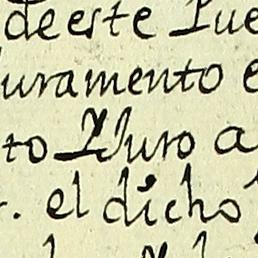 de este Pue
juramento e
to Y Juro a
. el dicho